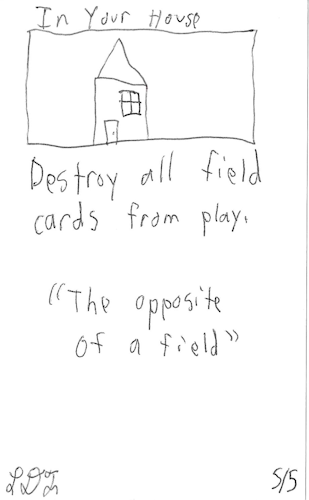 In Your House
Destroy all field
cards from play.
"The opposite
of a field"
LDJ 5/5